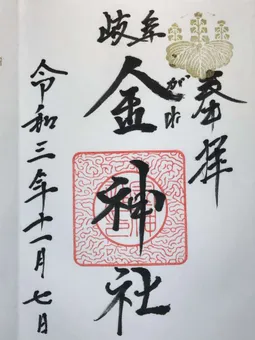 奉拝
岐阜
金神社
がね
令和三年十一月七日